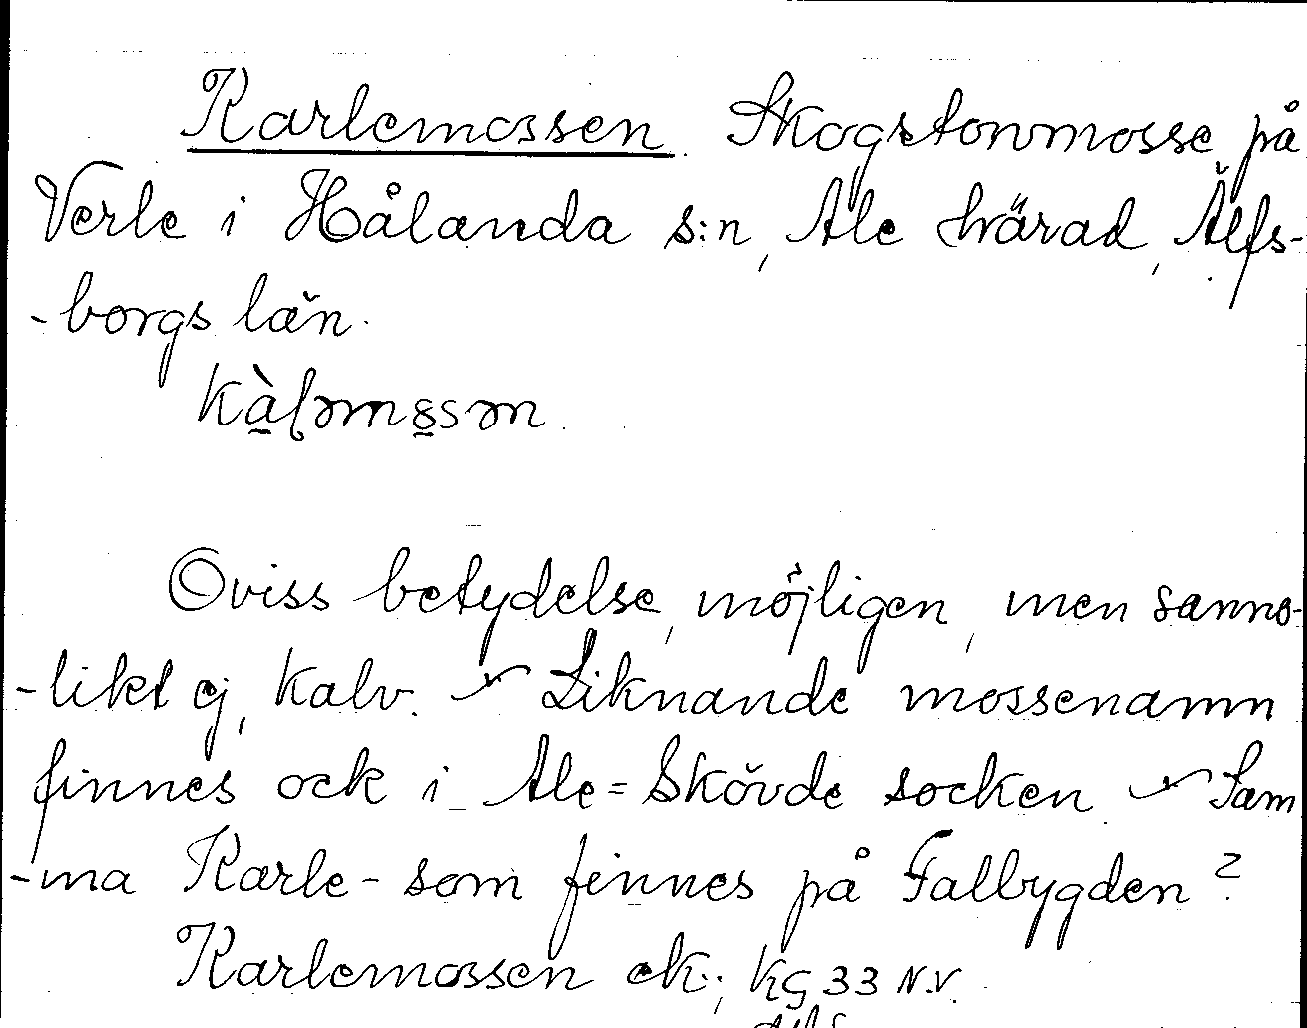 Karlemossen. Skogstorvmosse på
Verle i Hålanda s:n, Ale härad, Älfs-
-borgs län.
Kàlǝmossǝn.
Oviss betydelse, möjligen, men sanno-
-likt ej, kalv. ~ Liknande mossenamn
finnes ock i Ale=Skövde socken ~ Sam
-ma Karle- som finnes på Falbygden?
Karlemossen ek.; KG 33 N.V.